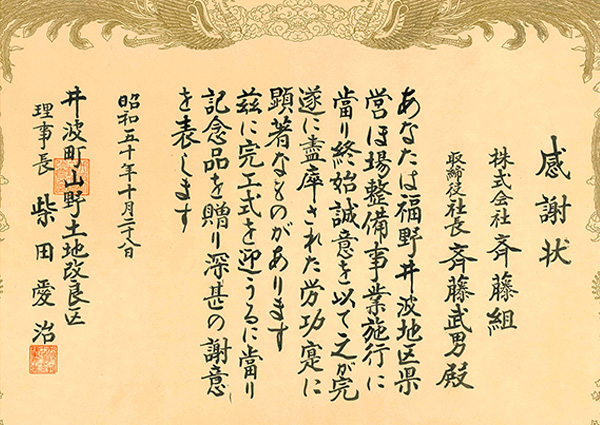 感謝状
株式会社 斉藤組
取締役社長 斉藤武男殿
あなたは福野井波地区県
営ほ場整備事業施行に
當り終始誠意を以て之が完
遂に盡瘁された労功寔に
顕著なものがあります
茲に完工式を迎うるに當り
記念品を贈り深甚の謝意
を表します
昭和五十年十月二十八日
井波町山野土地改良区
理事長 柴田愛治